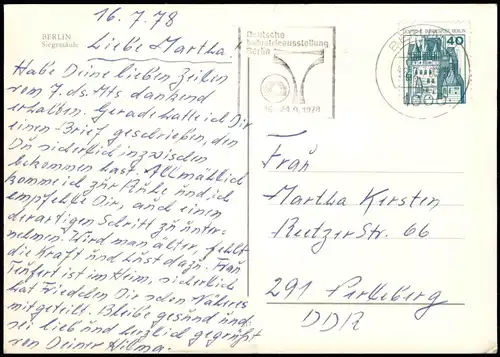 16.7.78
BERLIN
Siegessäule
Liebe Martha!
Habe Deine lieben Zeilen
vom 7. ds. Mts dankend
erhalten. Gerade hatte ich Dir
einen Brief geschrieben, den
Du sicherlich inzwischen
bekommen hast. Allmählich
komme ich zur Ruhe und ich
empfehle Dir, auch einen
derartigen Schritt zu unter-
nehmen. Wird man älter, fehlt
die Kraft und Lust dazu. Frau
ist im Heim, sicherlich
hat Friedchen Dir schon Näheres
mitgeteilt. Bleibe gesund und
sei lieb und herzlich gegrüßt
von Deiner Wilma.
Deutsche
Industrieausstellung
Berlin
1978
DEUTSCHE BUNDESPOST BERLIN
40
Frau
Martha Kersten
Reetzer Str. 66
291 Perleberg
DDR